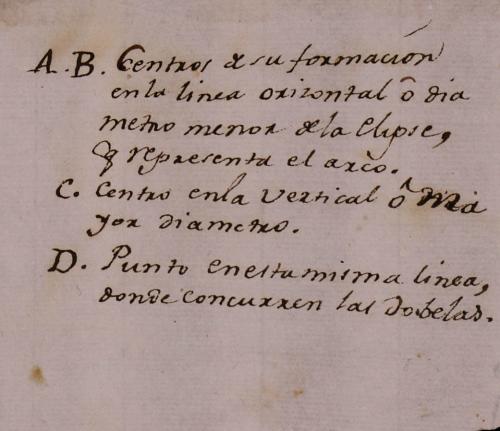 A.B. Centros de su formacion
en la linea orizontal ô dia
metro menor de la Elipse,
q̃ representa el arco.
C. Centro en la Vertical ô ma
yor diametro.
D. Punto en esta misma linea,
donde concurren las dobelas.